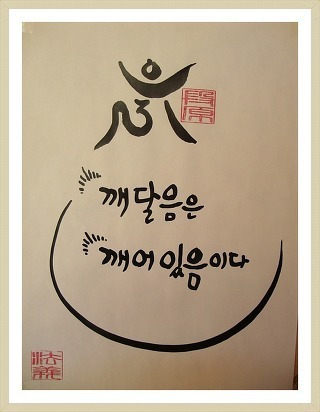 깨달음은
깨어있음이다